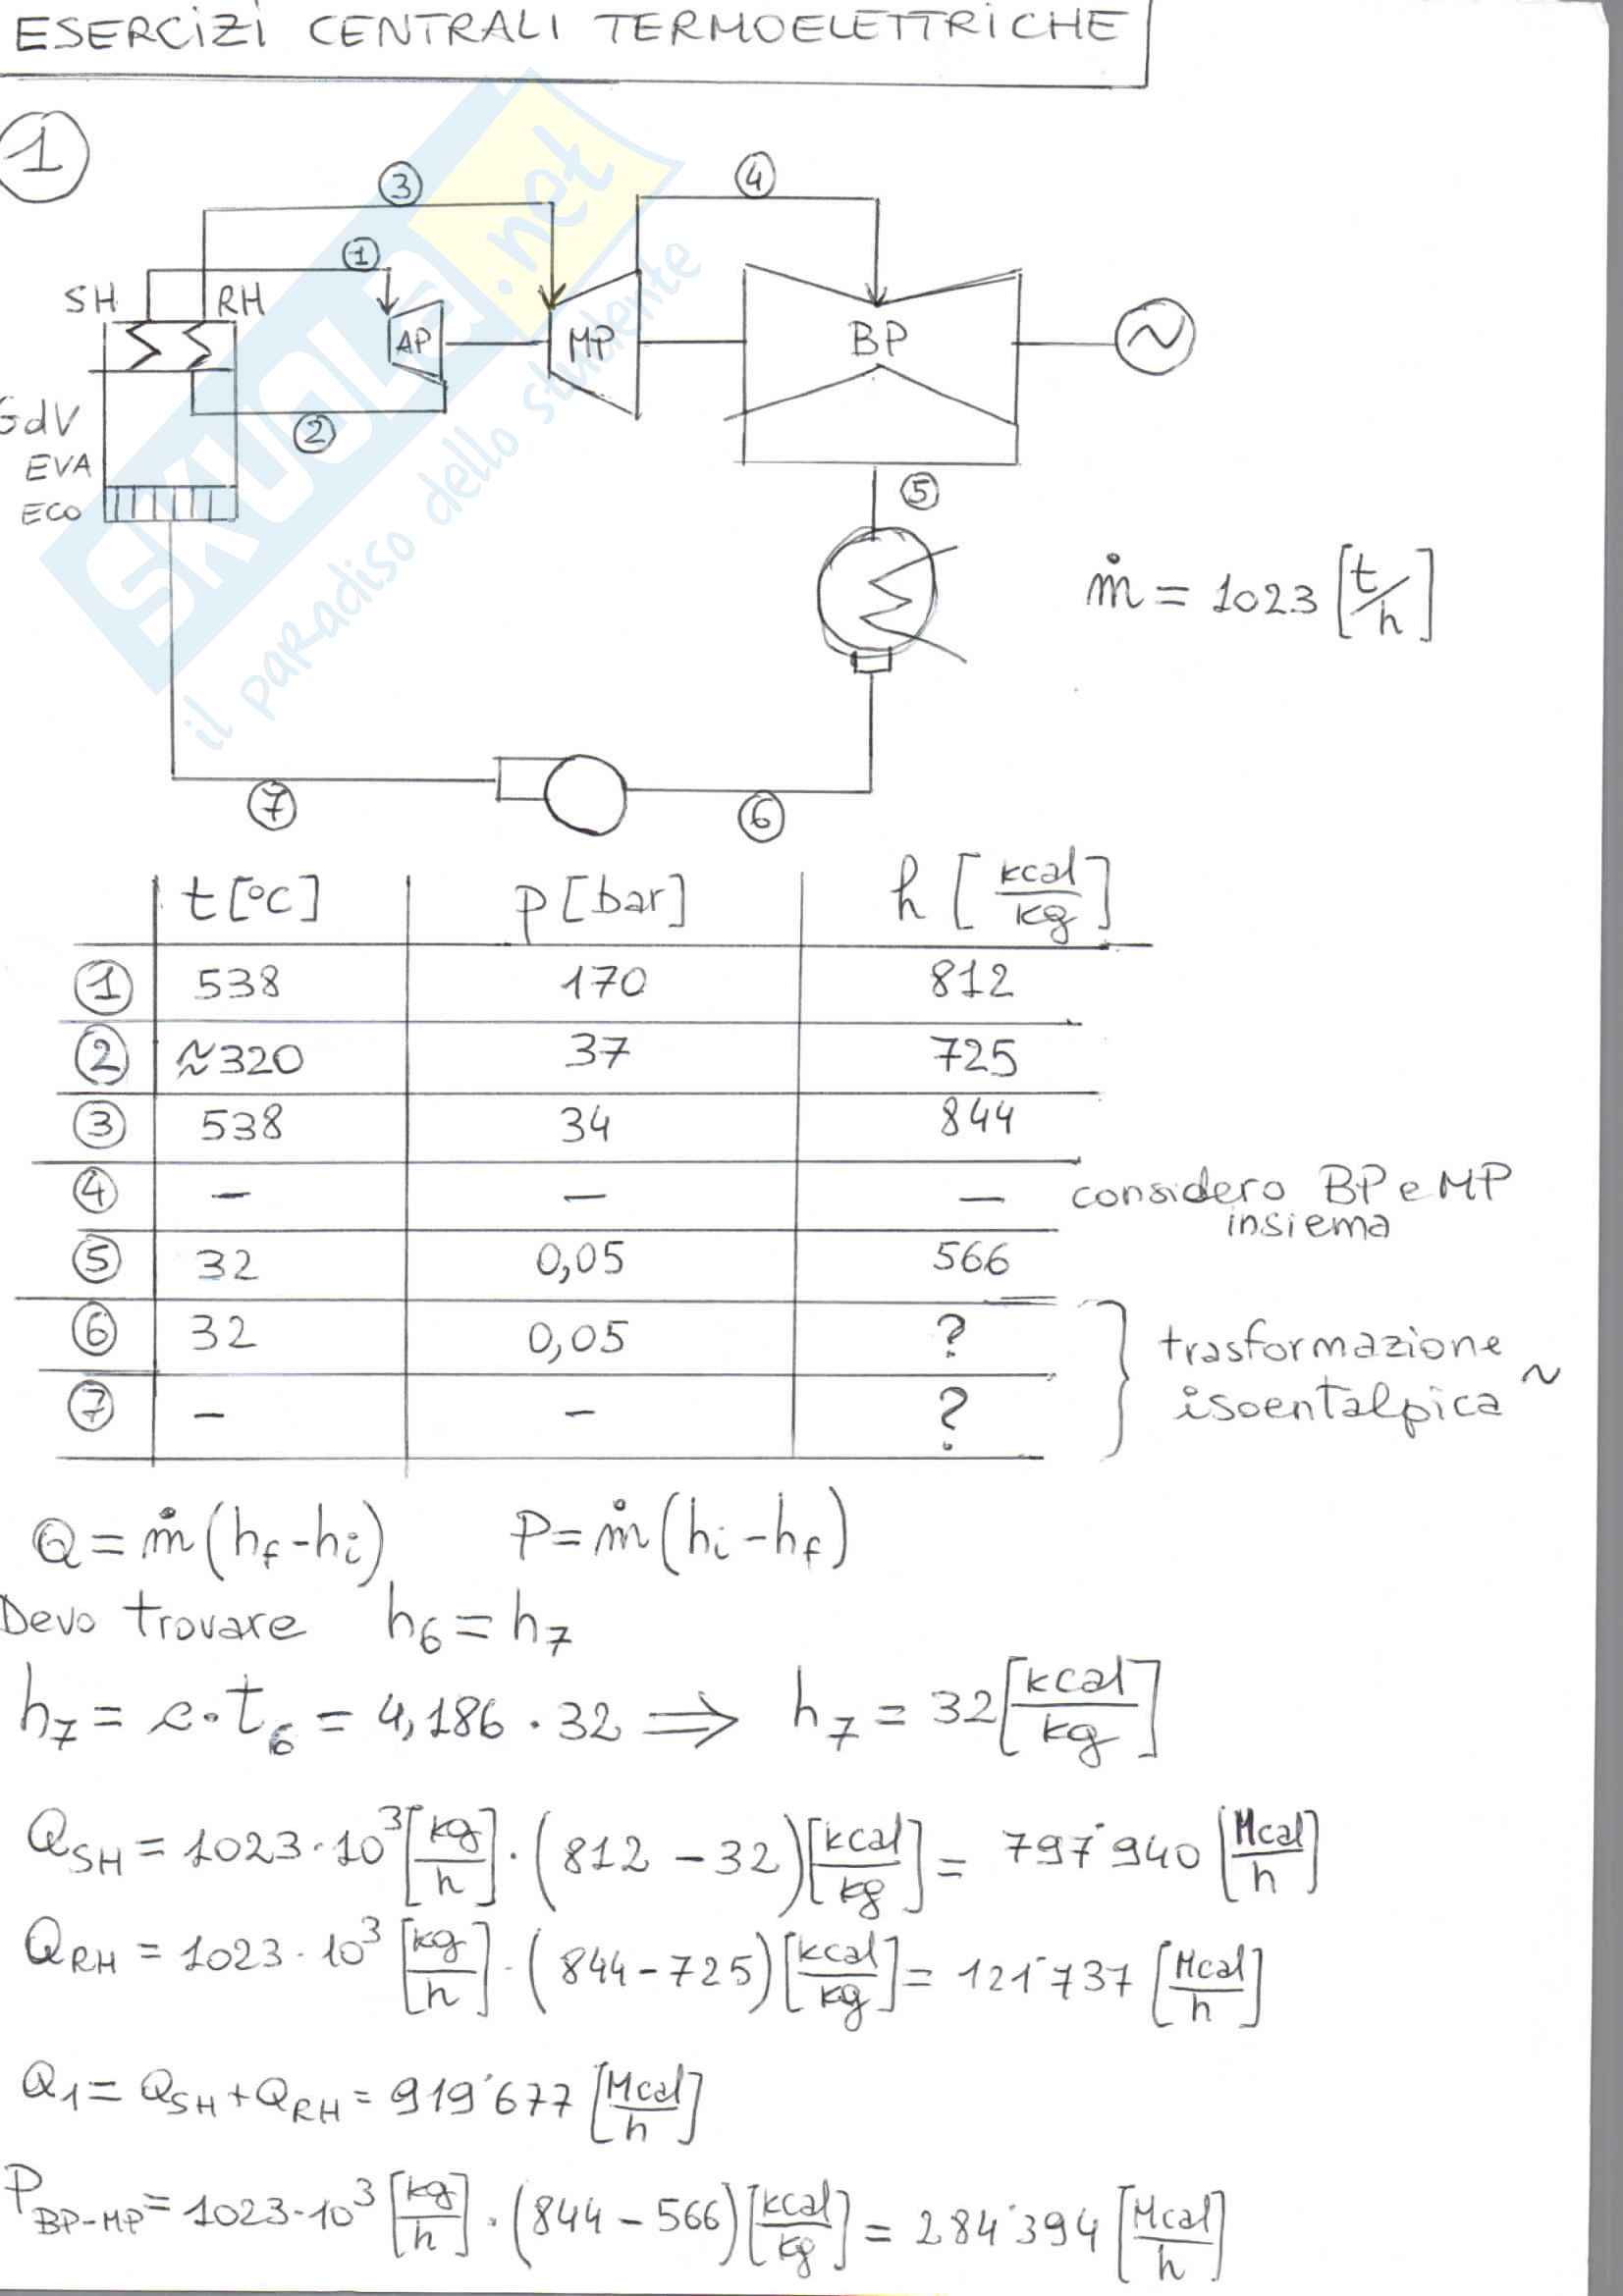 ESERCIZI CENTRALI TERMOELETTRICHE
1
3
4
1
SH
RH
AP
MP
BP
~
GdV
2
EVA
ECO
5
ṁ = 1023 [t/h]
7
6
SKUOLA.net
il paradiso dello studente
t [°C] p [bar] h [kcal/kg]
1 538 170 812
2 ≈320 37 725
3 538 34 844
4 – – – considero BP e MP
insiema
5 32 0,05 566
6 32 0,05 ? trasformazione
7 – – ? isoentalpica ~
Q = ṁ (hf - hi) P = ṁ (hi - hf)
Devo trovare h6 = h7
h7 = c · t6 = 4,186 · 32 ⟹ h7 = 32 [kcal/kg]
QSH = 1023 · 10³ [kg/h] · (812 - 32) [kcal/kg] = 797'940 [Mcal/h]
QRH = 1023 · 10³ [kg/h] · (844 - 725) [kcal/kg] = 121'737 [Mcal/h]
Q1 = QSH + QRH = 919'677 [Mcal/h]
PBP-MP = 1023 · 10³ [kg/h] · (844 - 566) [kcal/kg] = 284'394 [Mcal/h]